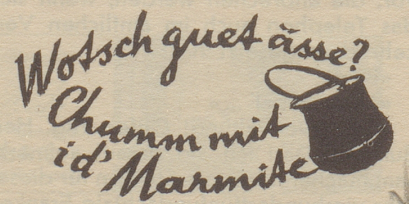 Wotsch guet ässe?
Chumm mit
i d' Marmite